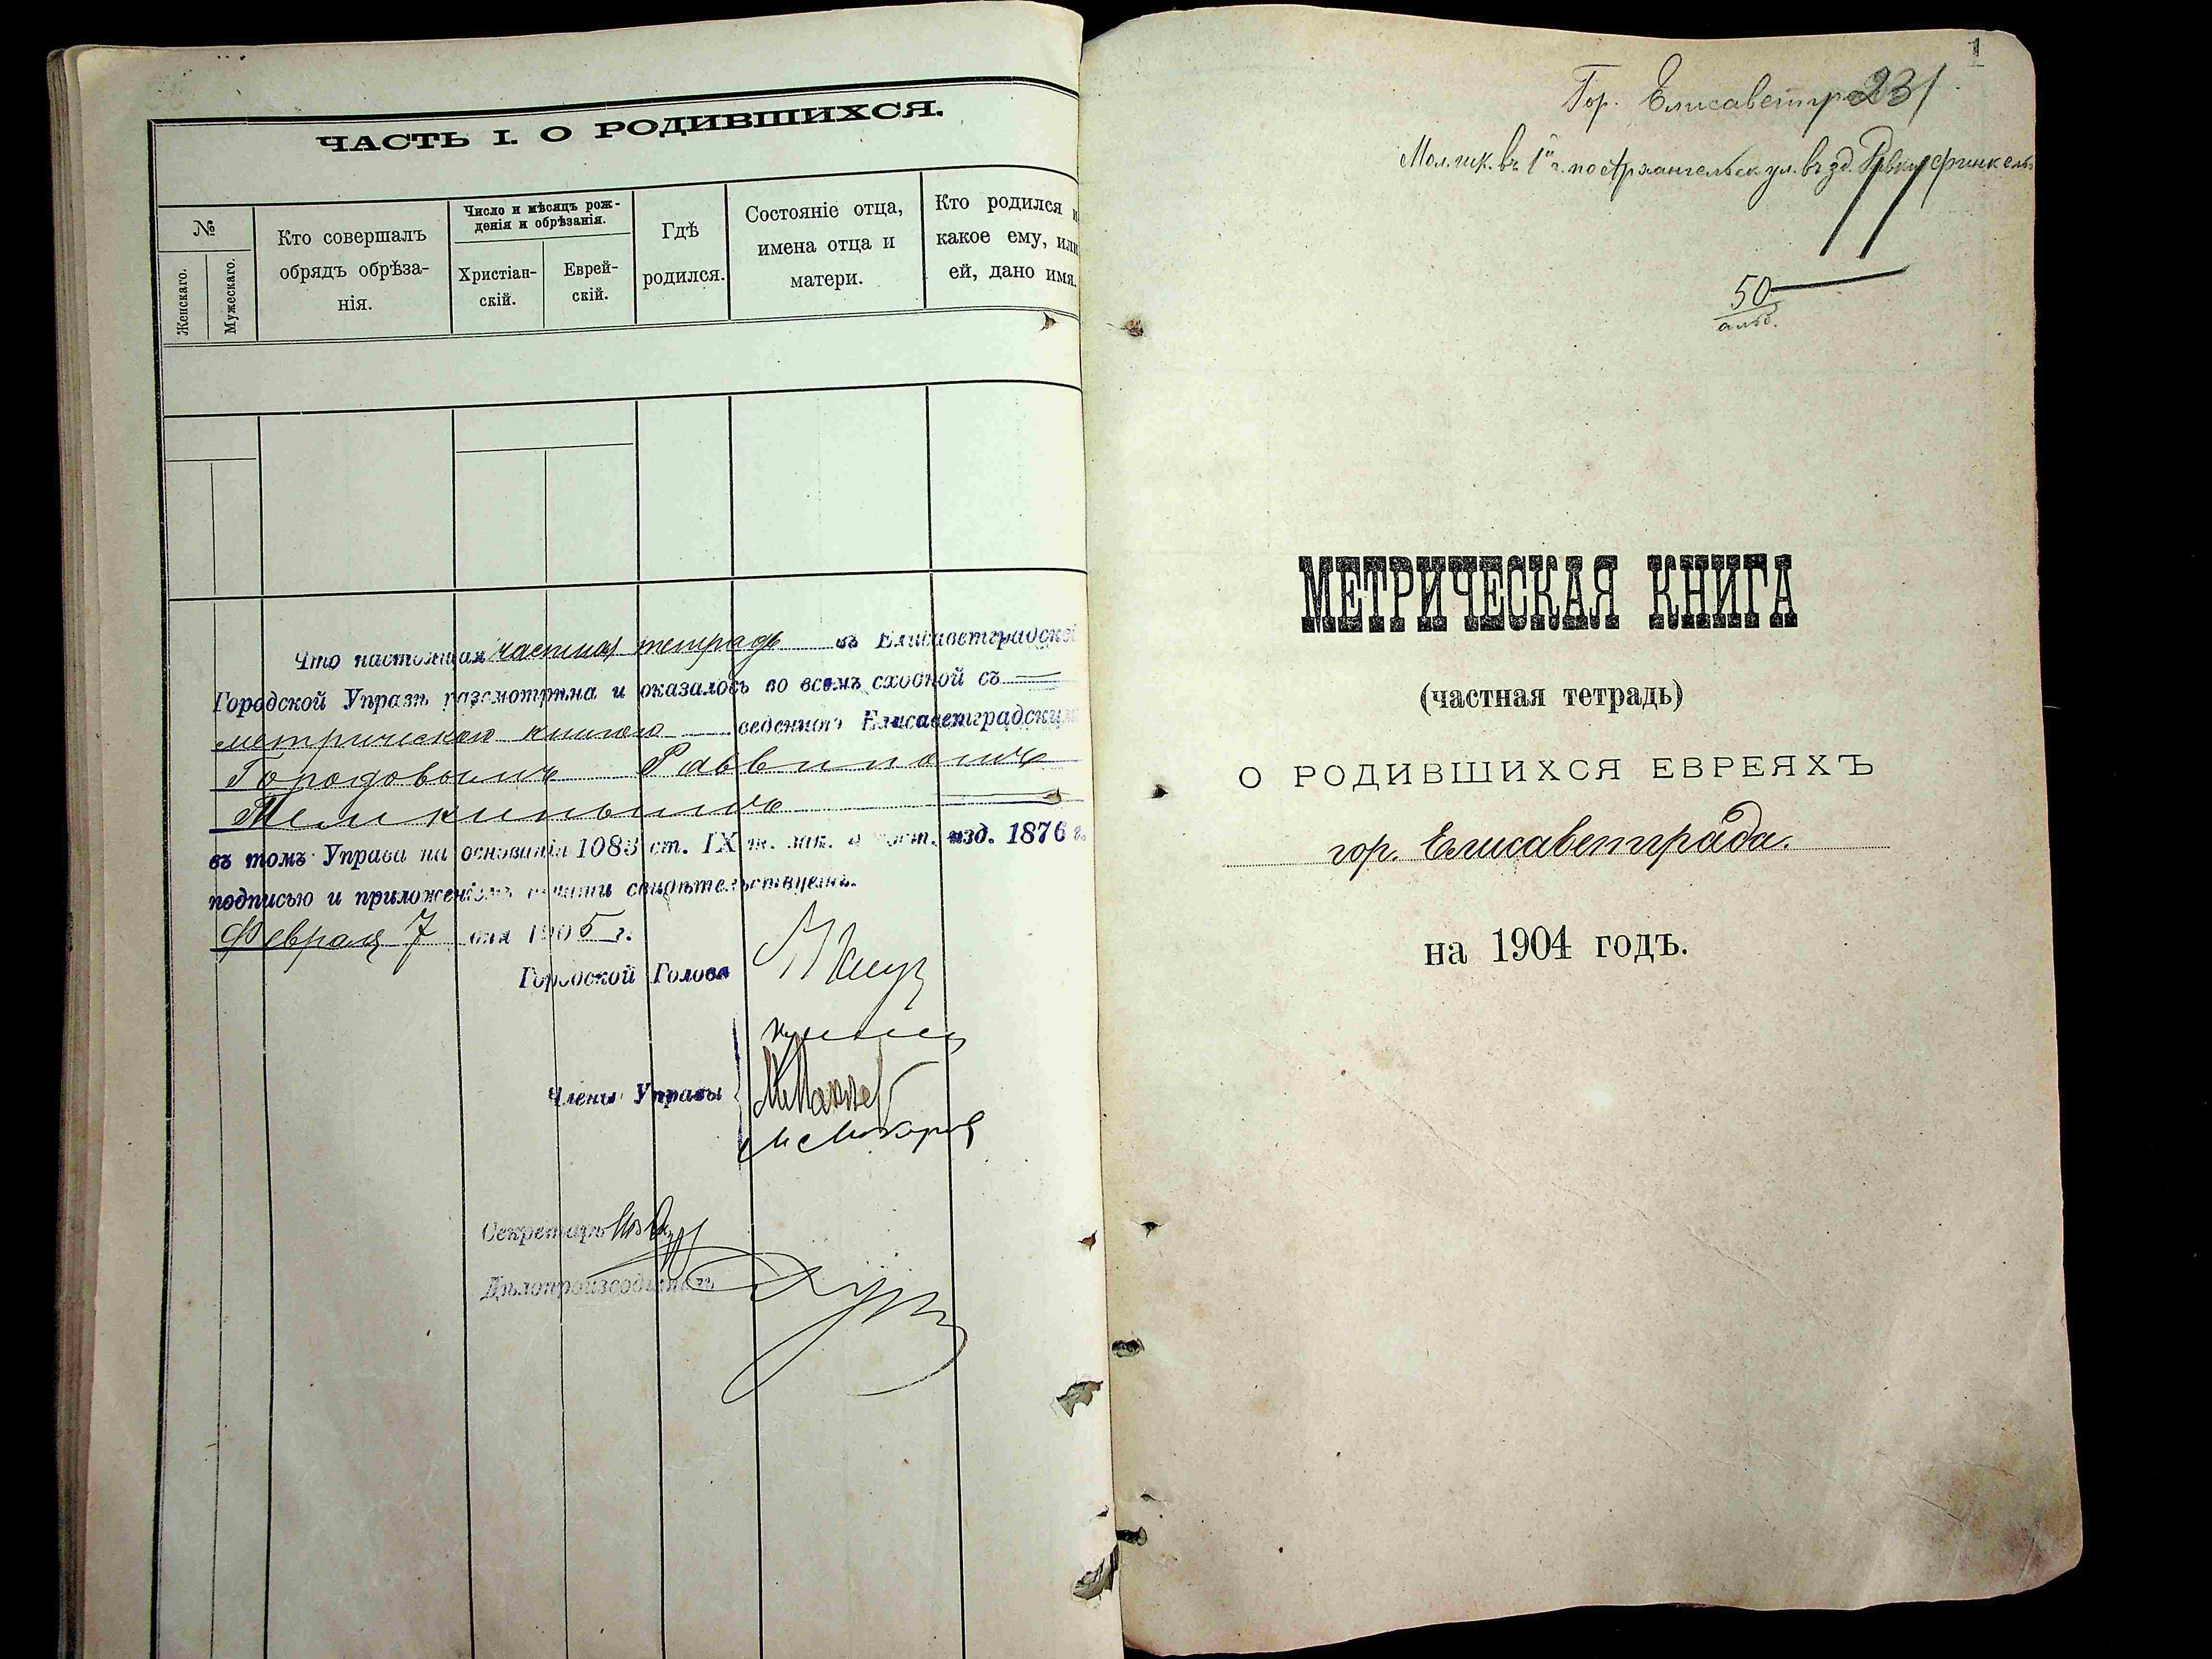 ЧАСТЬ I. О РОДИВШИХСЯ.
№
Женскаго.
Мужескаго.
Кто совершалъ
обрядъ обрѣза-
нія.
Число и мѣсяцъ рож-
денія и обрѣзанія.
Христіан-
скій.
Еврей-
скій.
Гдѣ
родился.
Состояніе отца,
имена отца и
матери.
Кто родился и
какое ему, или
ей, дано имя.
Что настоящая частная тетрадь въ Елисаветградской
Городской Управѣ разсмотрѣна и оказалось во всемъ сходной съ
метрическою книгою веденною Елисаветградскимъ
Городовымъ Раввиномъ
Темкинымъ
въ томъ Управа на основаніи 1083 ст. IX т. зак. о сост. изд. 1876 г.
подписью и приложеніемъ печати свидѣтельствуетъ.
Февраля 7 дня 1905 г.
Городской Голова
Члены Управы
М Макаров
Секретарь
Дѣлопроизводитель
1
Гор. Елисаветгр 231
въ 1й ч. по Архангельск ул. въ зд.
50
МЕТРИЧЕСКАЯ КНИГА
(частная тетрадь)
О РОДИВШИХСЯ ЕВРЕЯХЪ
гор. Елисаветграда.
на 1904 годъ.